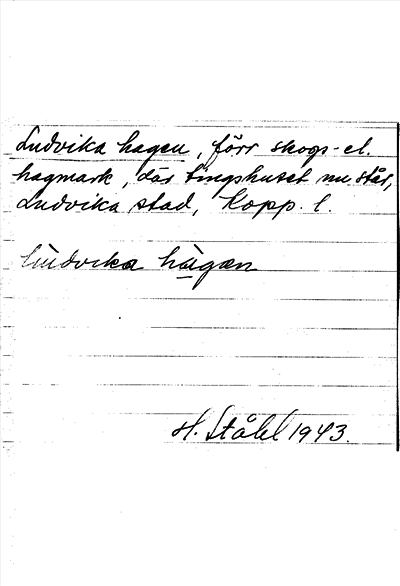 Ludvika hagen, förr skogs- el.
hagmark, där tingshuset nu står,
Ludvika stad, Kopp. l.
lùdvika hàgan
H. Ståhl 1943.